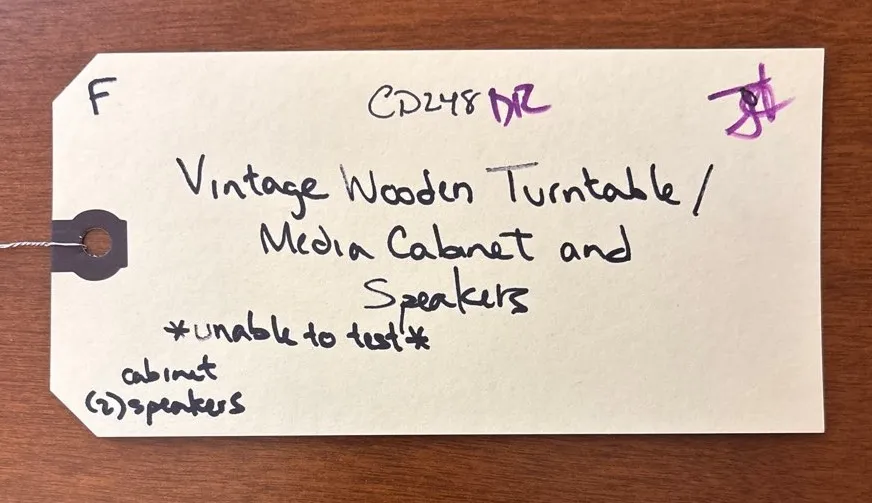 F
CD248 DR
Vintage Wooden Turntable /
Media Cabinet and
Speakers
*unable to test*
cabinet
(2) speakers